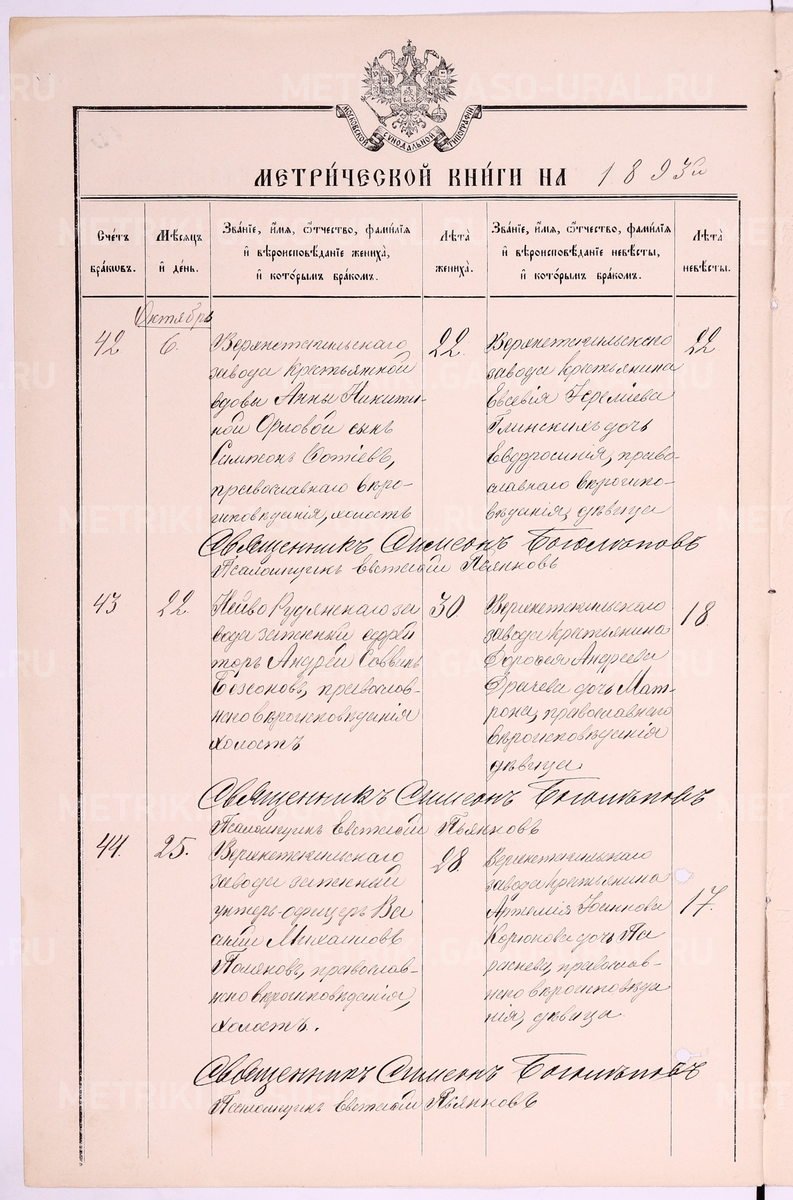 МОСКОВСКОЙ СѴНОДАЛЬНОЙ ТИПОГРАФІИ
МЕТРИ́ЧЕСКОЙ КНИ́ГИ НА 1893й
Сче́тъ бра́ковъ.
Мѣ́сяцъ и҆ де́нь.
Зва́нїе, и҆́мя, ѻ҆́тчество, фами́лїя
и҆ вѣроисповѣ́данїе жениха̀,
и҆ кото́рымъ бра́комъ.
Лѣ́та жениха̀.
Зва́нїе, и҆́мя, ѻ҆́тчество, фами́лїя
и҆ вѣроисповѣ́данїе невѣ́сты,
и҆ кото́рымъ бра́комъ.
Лѣ́та невѣ́сты.
Октябрь
42
6.
Верхнетагильскаго
завода крестьянской
вдовы Анны Никити-
ной Орловой сынъ
Симеонъ Фотіевъ,
православнаго вѣро-
исповѣданія, холостъ
22.
Верхнетагильскаго
завода крестьянина
Евсевія Іереміева
Глинскихъ дочь
Евдросинія, право-
славнаго вѣроиспо-
вѣданія, дѣвица
22
Священникъ Симеонъ Боголѣповъ
Псаломщикъ Евстафій Пьянковъ
43
22
Нейво Рудянскаго за
вода
Андрей Саввинъ
православ-
наго вѣроисповѣданія
холостъ
30.
Верхнетагильскаго
завода крестьянина
Дорофея Андреева
Грачева дочь Мат-
рона, православнаго
вѣроисповѣданія
дѣвица.
18
Священникъ Симеонъ Боголѣповъ
Псаломщикъ Евстафій Пьянковъ
44.
25.
Верхнетагильскаго
завода запасный
унтеръ-офицеръ Ва
силій Михаиловъ
Поляковъ, православ-
наго вѣроисповѣданія,
холостъ.
28.
Верхнетагильскаго
завода крестьянина
Артемія Іоаннова
Корюкова дочь Па
раскева, православ-
наго вѣроисповѣда
нія, дѣвица.
17.
Священникъ Симеонъ Боголѣповъ
Псаломщикъ Евстафій Пьянковъ